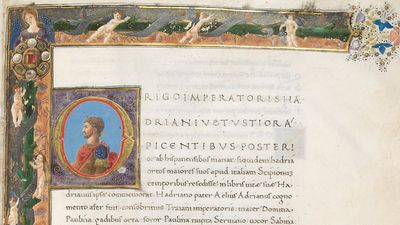 ORIGO IMPERATORIS HA
DRIANI VETVSTIOR A
PICENTIBVS POSTERI
or ab hispanensibus manat. siquidem hadria
ortos maiores suos apud italiam Scipionum
temporibus resedisse in libris uitæ suæ Ha
drianus ipse commemorat. Hadriano pater Aelius Adrianus cogno
mento afer fuit: consobrinus Traiani imperatoris: mater Domitia
Paulina gadibus orta. soror Paulina nupta Seruiano. uxor Sabina